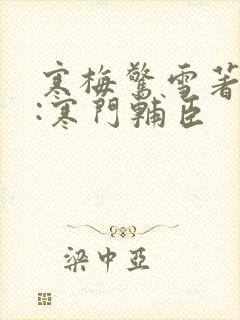 寒梅驚雪著
:寒門輔臣
梁中亞